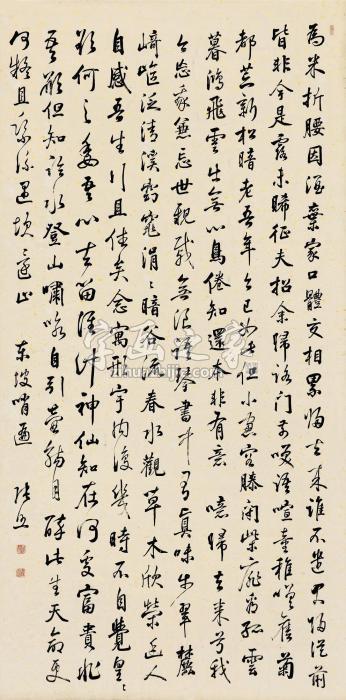 為米折腰因酒棄家口體交相累歸去來誰不遣君歸從前
皆非今是露未晞征夫招余歸路門前笑語喧童稚嗟舊菊
都荒新松暗老吾年今已如此但小窗容膝閉柴扉看孤雲
暮鴻飛雲出無心鳥倦知還本非有意噫歸去來兮我
今忘我兼忘世親戚無浪語琴書中有真味步翠麓
崎嶇泛清溪窈窕涓〻暗谷流春水觀草木欣榮幽人
自感吾生行且休矣念寓形宇內復幾時不自覺皇〻
欲何之委吾心去留誰計神仙知在何處富貴非
吾願但知臨水登山嘯咏自引壺觴自醉此生天命更
何疑且乘流遇坎還止 東坡哨遍 張照